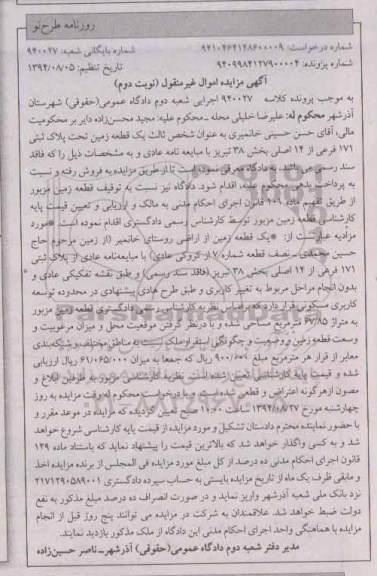 روزنامه طرح‌نو
شماره درخواست: ۹۴۱۰۴۶۴۱۲۸۶۰۰۰۰۹ شماره بایگانی شعبه: ۹۴۰۰۲۷
شماره پرونده: ۹۴۰۹۹۸۴۱۲۷۹۰۰۰۰۴ تاریخ تنظیم: ۱۳۹۴/۰۸/۰۵
آگهی مزایده اموال غیرمنقول (نوبت دوم)
به موجب پرونده کلاسه ۹۴۰۰۲۷ اجرایی شعبه دوم دادگاه عمومی(حقوقی) شهرستان
آذرشهر محکوم له: علیرضا خلیلی محله ـ محکوم علیه: مجید محسن‌زاده دایر بر محکومیت
مالی، آقای حسن حسینی خانمیری به عنوان شخص ثالث یک قطعه زمین تحت پلاک ثبتی
۱۷۱ فرعی از ۱۴ اصلی بخش ۳۸ تبریز با مبایعه نامه عادی و به مشخصات ذیل را که فاقد
سند رسمی می‌باشد، به دادگاه معرفی نموده است تا از طریق مزایده به فروش رفته و نسبت
به پرداخت بدهی محکوم علیه، اقدام شود. دادگاه نیز نسبت به توقیف قطعه زمین مزبور
از طریق تفهیم ماده ۱۰۱ قانون اجرای احکام مدنی به مالک و ارزیابی و تعیین قیمت پایه
کارشناسی قطعه زمین مزبور توسط کارشناس رسمی دادگستری اقدام نموده است. *مورد
مزایده عبارتست از: *یک قطعه زمین از اراضی روستای خانمیر (از زمین مرحوم حاج
حسین محمدی ـ نصف قطعه شماره ۷ از کروکی عادی) با مبایعه‌نامه عادی از پلاک ثبتی
۱۷۱ فرعی از ۱۴ اصلی بخش ۳۸ تبریز (فاقد سند رسمی) و طبق نقشه تفکیکی عادی و
بدون انجام مراحل مربوط به تغییر کاربری و طبق طرح هادی پیشنهادی در محدوده توسعه
کاربری مسکونی قرار دارد که برابر نظریه کارشناس رسمی دادگستری قطعه زمین مزبور
به متراژ ۶۷/۸۵ مترمربع مساحی شده و با درنظر گرفتن موقعیت محل و میزان مرغوبیت و
وسعت قطعه زمین و وضعیت و چگونگی استقرار ملک نسبت به مناطق مختلف و شبکه‌بندی
معابر از قرار هر مترمربع مبلغ ۹۰۰/۰۰۰ ریال که جمعا به میزان ۶۱/۰۶۵/۰۰۰ ریال ارزیابی
شده و قیمت پایه کارشناسی تعیین شده است. نظریه کارشناسی مزبور به طرفین ابلاغ و
مصون ازهرگونه اعتراض و قطعی و با درخواست محکوم له وقت مزایده به روز
چهارشنبه مورخ ۱۳۹۴/۰۸/۲۷ ساعت ۱۰:۰۰ صبح تعیین گردیده که مزایده در موعد مقرر و
با حضور نماینده محترم دادستان تشکیل و مورد مزایده از قیمت پایه کارشناسی شروع خواهد
شد و به کسی واگذار خواهد شد که بالاترین قیمت را پیشنهاد نماید که باستناد ماده ۱۲۹
قانون اجرای احکام مدنی ده درصد از کل مبلغ مورد مزایده فی المجلس از برنده مزایده اخذ
و مابقی ظرف یک ماه از تاریخ مزایده بایستی به حساب سپرده دادگستری ۲۱۷۱۲۹۰۵۸۹۰۰۱
نزد بانک ملی شعبه آذرشهر واریز نماید و در صورت انصراف ده درصد مبلغ مذکور به نفع
دولت ضبط خواهد شد. علاقمندان به شرکت در مزایده می توانند پنج روز قبل از انجام
مزایده با هماهنگی واحد اجرای احکام مدنی این دادگاه از ملک مذکور بازدید نمایند.
مدیر دفتر شعبه دوم دادگاه عمومی(حقوقی) آذرشهرـ ناصر حسین‌زاده